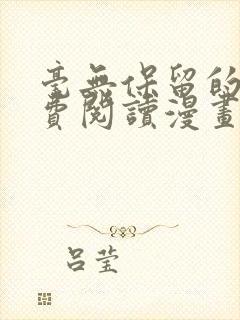 毫無保留的
費閱讀漫畫
呂瑩